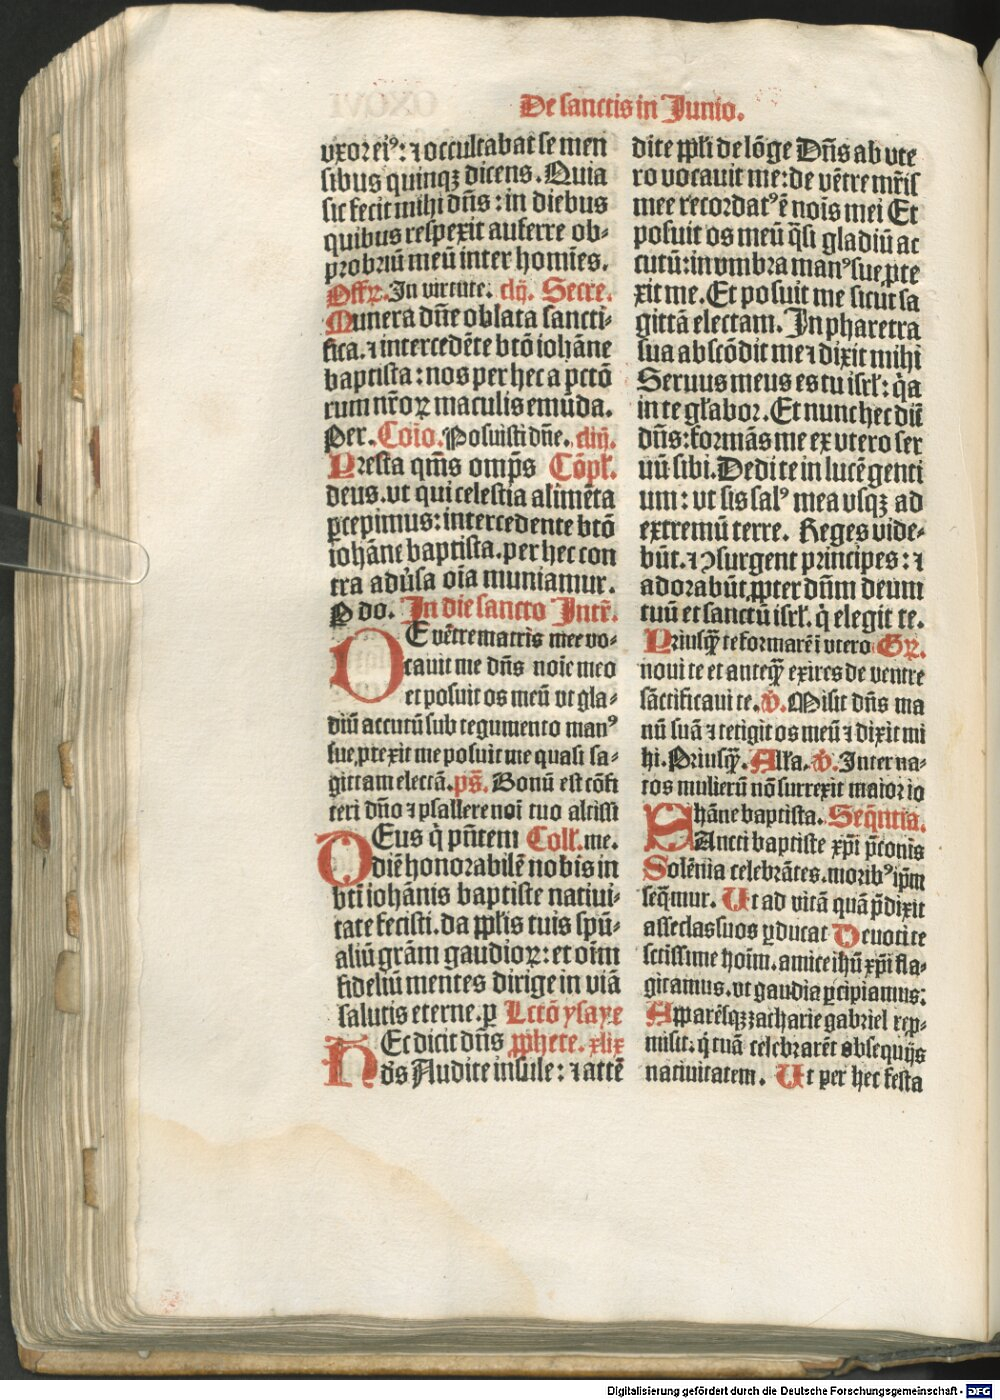 De sanctis in Junio.
vxor eiꝰ: ⁊ occultabat se men
sibus quinqꝫ dicens. Quia
sic fecit mihi dn̄s: in diebus
quibus respexit auferre ob⸗
probriū meū inter homīes.
Offꝛ. In virtute. clij. Secre.
Munera dn̄e oblata sancti⸗
fica. ⁊ intercedēte btō iohāne
baptista: nos per hec a pctō
rum nr̄oꝝ maculis emūda.
Per. Cōio. Posuisti dn̄e. cliij.
Presta qm̄s omp̄s Cōpl.
deus. vt qui celestia alimēta
ꝑcepimus: intercedente btō
iohāne baptista. per hec con
tra adūsa oīa muniamur.
P do. In die sancto Intr̄.
DE vētre matris mee vo⸗
cauit me dn̄s noīe meo
et posuit os meū vt gla⸗
diū accutū sub tegumento manꝰ
sue, ꝓtexit me posuit me quasi sa⸗
gittam electā. ps̄. Bonū est cōfi
teri dn̄o ⁊ psallere noī tuo altissi
DEus q̇ pn̄tem Coll. me.
diē honorabilē nobis in
btī iohānis baptiste natiui⸗
tate fecisti. da ppl̄is tuis spū⸗
aliū gr̄am gaudioꝝ: et oīm
fideliū mentes dirige in viā
salutis eterne. ꝑ Lctō ysaye
HEc dicit dn̄s ꝓphete. xlix
dō̄s Audite insule: ⁊ attē
dite ppl̄i de lōge Dn̄s ab vte
ro vocauit me: de vētre mr̄is
mee recordatꝰ ē noīs mei Et
posuit os meū q̄si gladiū ac
cutū: in vmbra manꝰ sue ꝓte
xit me. Et posuit me sicut sa
gittā electam. In pharetra
sua abscōdit me ⁊ dixit mihi
Seruus meus es tu isrl̄: q̇a
in te gl̄abor. Et nunc hec dic̄
dn̄s: formās me ex vtero ser
uū sibi. Dedi te in lucē genti
um: vt sis salꝰ mea vsqꝫ ad
extremū terre. Reges vide⸗
būt. ⁊ ꝯsurgent principes: ⁊
adorabūt ꝓpter dn̄m deum
tuū et sanctū isrl̄. q̇ elegit te.
Priusq̄ꝫ te formarē ī vtero Gꝛ.
noui te et anteq̄ꝫ exires de ventre
sāctificaui te. ꝟ. Misit dn̄s ma
nū suā ⁊ tetigit os meū ⁊ dixit mi
hi. Priusq̄ꝫ. All'a. ꝟ. Inter na⸗
tos mulierū nō surrexit maior io
hāne baptista. Seq̄ntia.
SAncti baptiste xp̄i p̄conis
Solēnia celebrātes. moribꝰ ip̄m
seq̄mur. Ut ad vitā quā p̄dixit
asseclas suos ꝑducat Deuoti te
sctissime hoīm. amice ihū xp̄i fla⸗
gitamus. vt gaudia ꝑcipiamus:
Apparēsqꝫ zacharie gabriel rep⸗
misit: q̇ tuā celebrarēt obsequijs
natiuitatem. Ut per hec festa
Digitalisierung gefördert durch die Deutsche Forschungsgemeinschaft - DFG